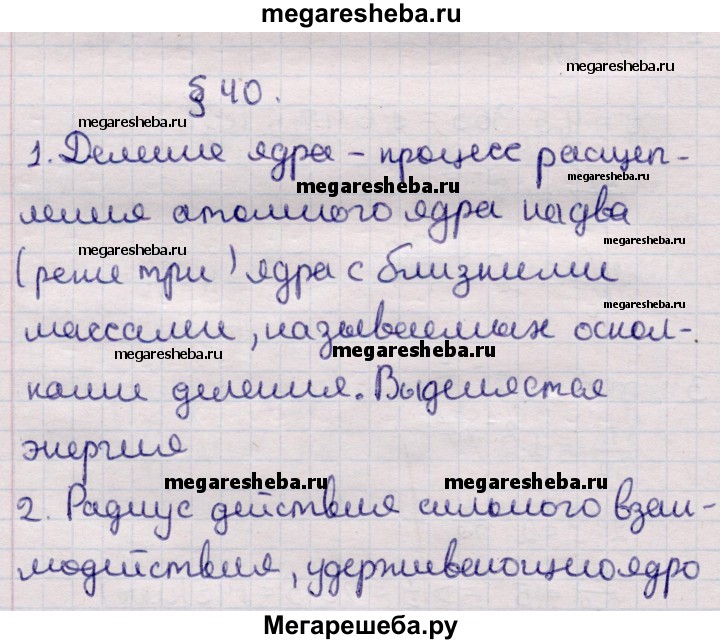 megaresheba.ru
megaresheba.ru
§ 40.
megaresheba.ru
1. Деление ядра – процесс расщеп-
megaresheba.ru
megaresheba.ru
ления атомного ядра на два
megaresheba.ru
(реже три) ядра с близкими
megaresheba.ru
массами, называемых оскол-
megaresheba.ru
megaresheba.ru
ками деления. Выделяется
энергия
megaresheba.ru
megaresheba.ru
2. Радиус действия сильного взаи-
модействия, удерживающего ядро
Мегарешеба.ру